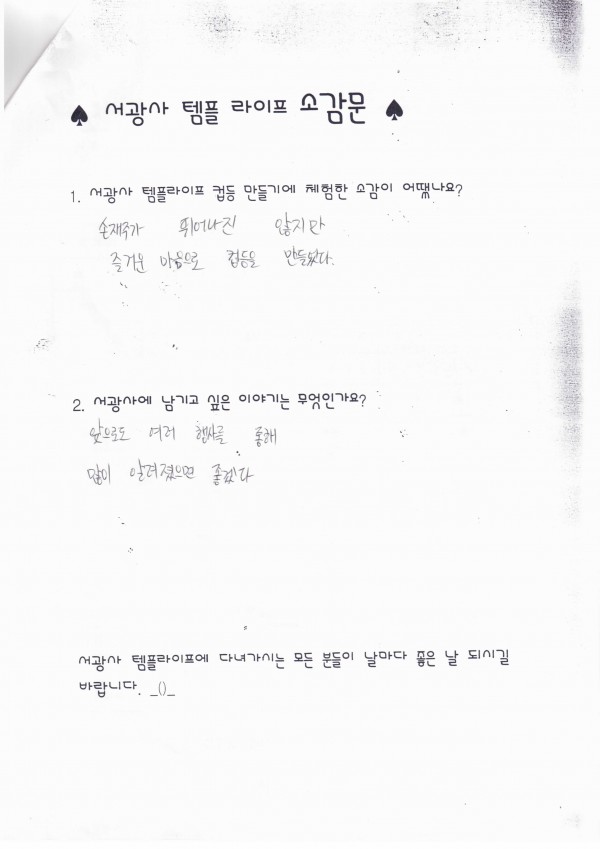 ♠ 서광사 템플 라이프 소감문 ♠
1. 서광사 템플라이프 컵등 만들기에 체험한 소감이 어땠나요?
손재주가 뛰어나진 않지만
즐거운 마음으로 컵등을 만들었다.
2. 서광사에 남기고 싶은 이야기는 무엇인가요?
앞으로도 여러 행사를 통해
많이 알려졌으면 좋겠다
서광사 템플라이프에 다녀가시는 모든 분들이 날마다 좋은 날 되시길
바랍니다. _()_